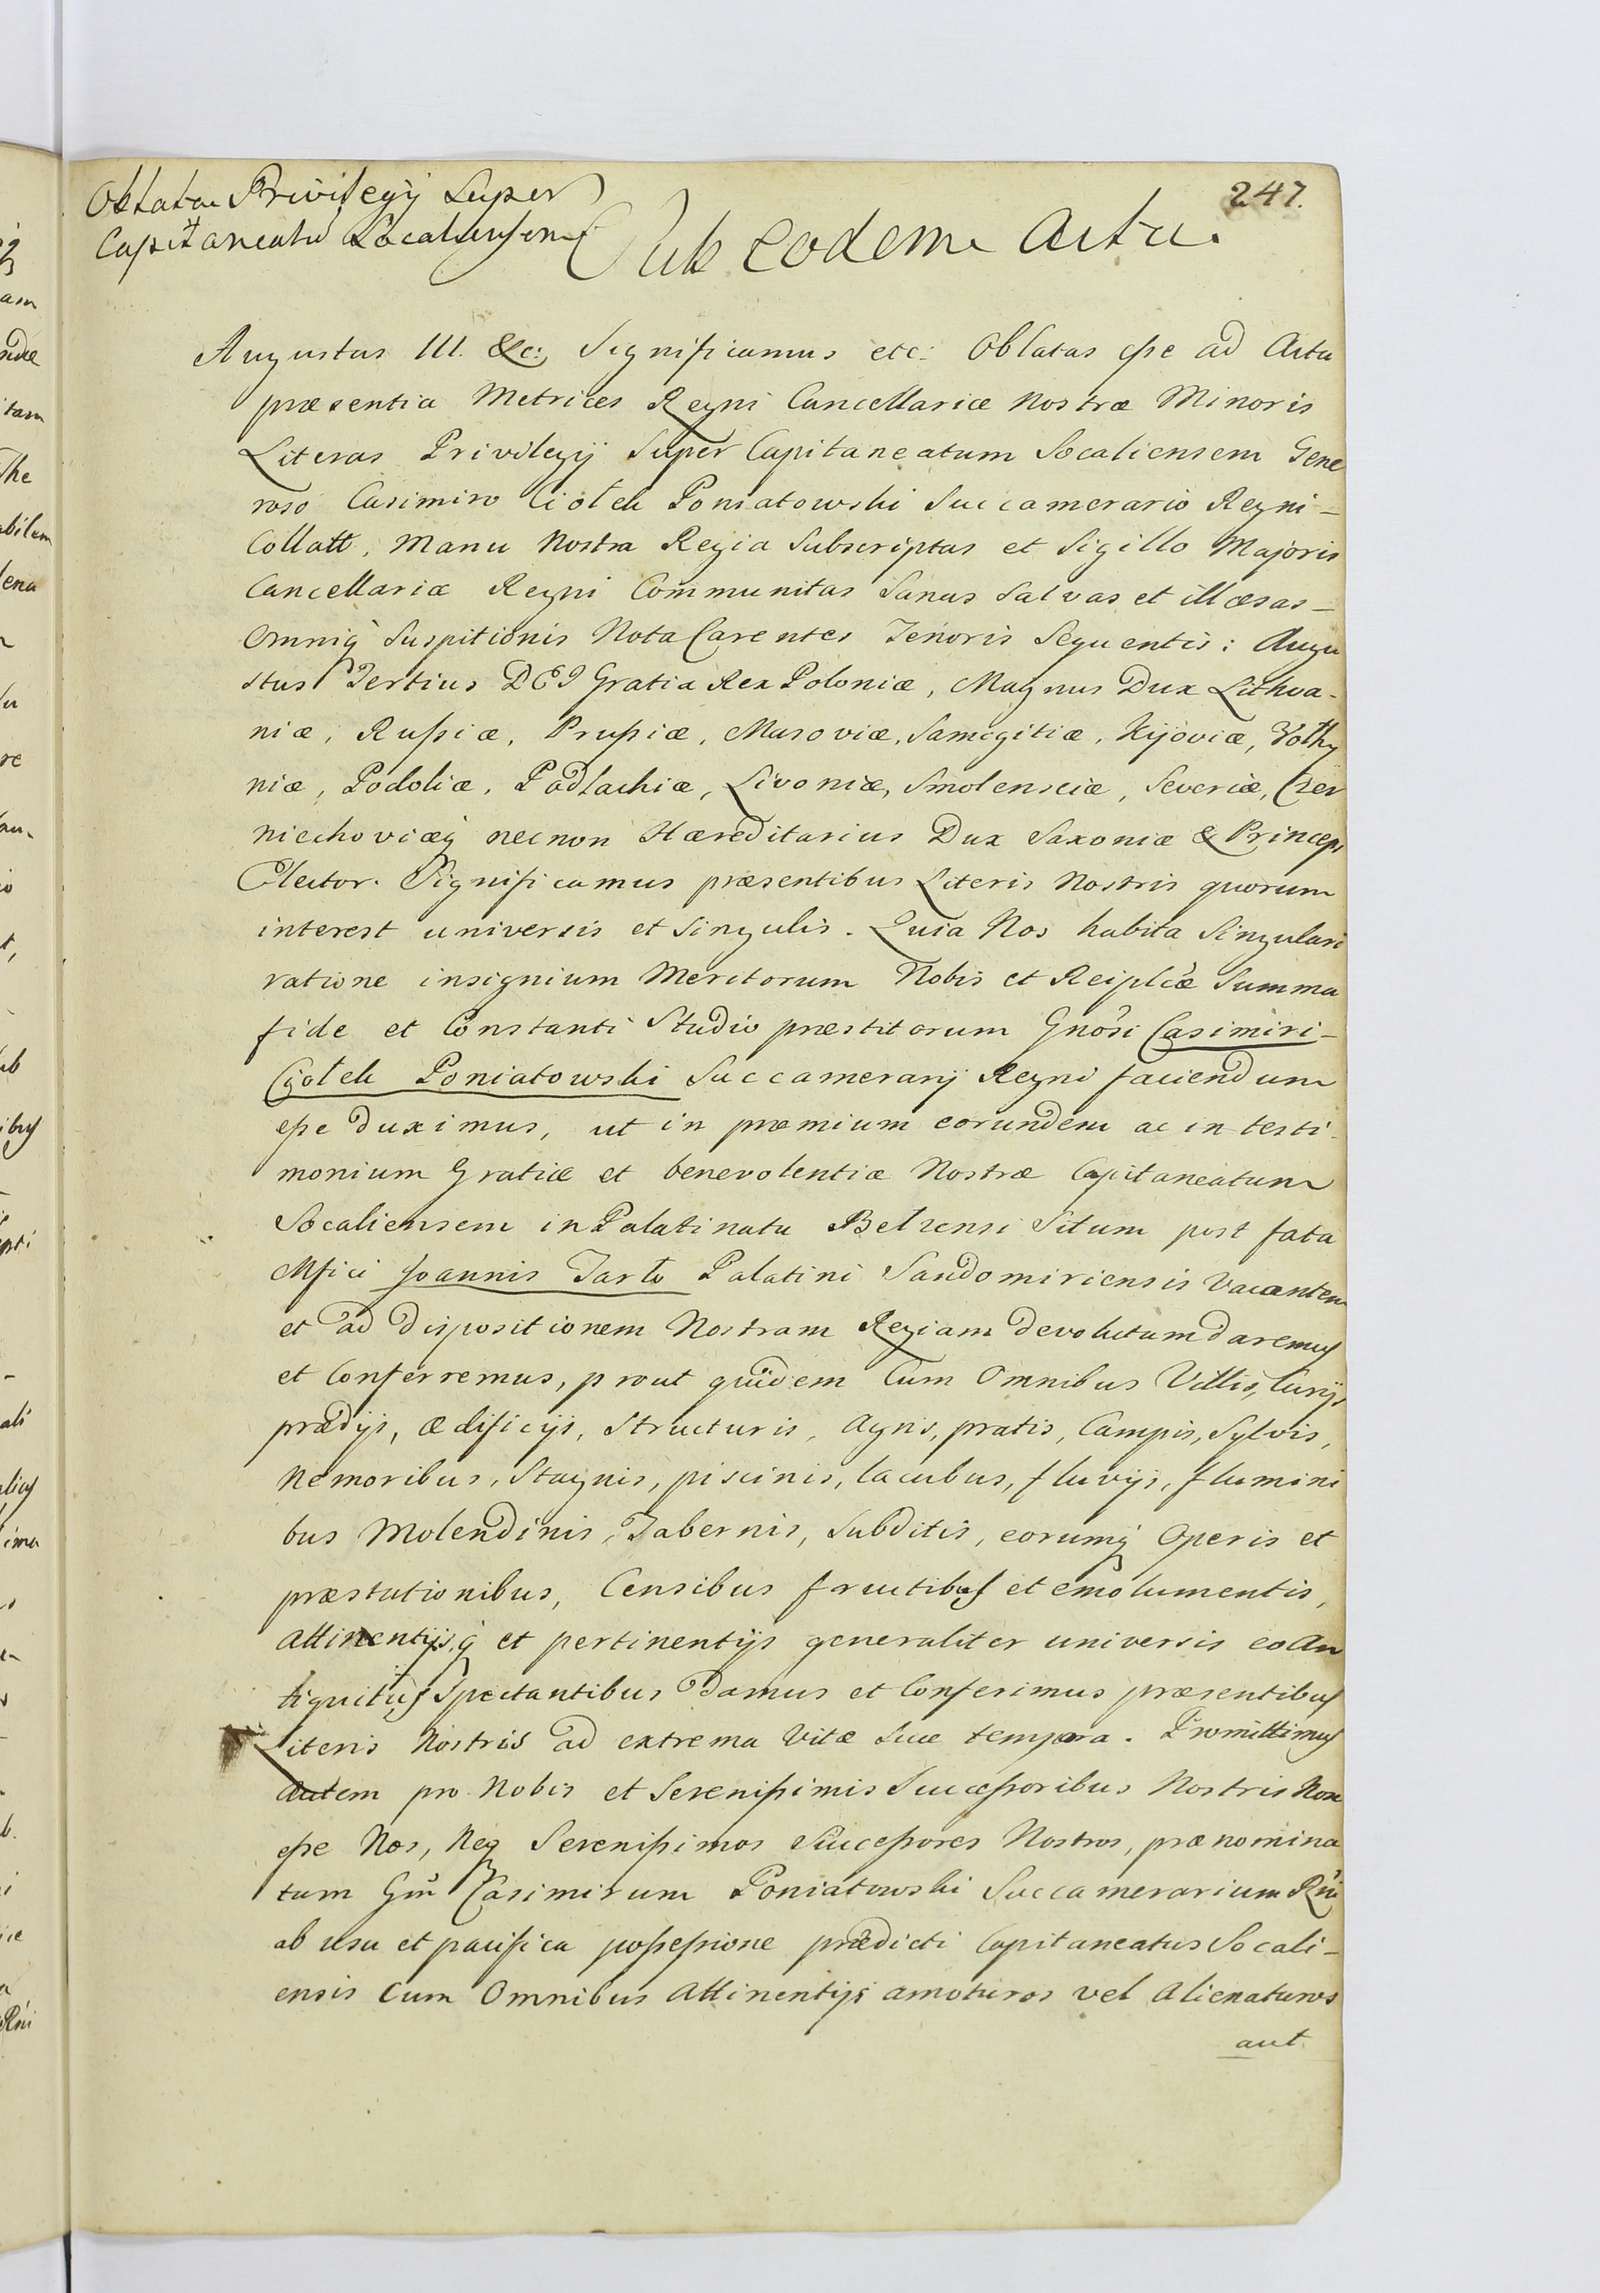 247.
Oblata Privilegij Super
Capitaneatu Socaliensem
Sub eodem Actu.
Augustus III. &c: Significamus etc: Oblatas esse ad Acta
præsentia Metrices Regni Cancellariæ Nostræ Minoris
Literas Privilegij Super Capitaneatum Socaliensem Gene
roso Casimiro Ciołek Poniatowski Succamerario Regni-
Collatt, Manu Nostra Regia Subscriptas et Sigillo Majoris
Cancellariæ Regni Communitas Sanas Salvas et illæsas-
Omniq Suspitionis Nota Carentes Tenoris Sequentis: Augu
stus Tertius DEI Gratia Rex Poloniæ, Magnus Dux Lithva-
niæ, Russiæ, Prussiæ, Masoviæ, Samogitiæ, Kijoviæ, Volhy
niæ, Podoliæ, Podlachiæ, Livoniæ, Smolensciæ, Severiæ, Czer
niechoviæq necnon Hæreditarius Dux Saxoniæ & Princeps
Elector. Significamus præsentibus Literis Nostris quorum
interest universis et Singulis. Quia Nos habita Singulari
ratione insignium Meritorum Nobis et Reiplcæ Summa
fide et Constanti Studio præstitorum Gnosi Casimiri-
Cyołek Poniatowski Succamerarij Regni faciendum
esse duximus, ut in præmium eorundem ac in testi-
monium Gratiæ et benevolentiæ Nostræ Capitaneatum
Socaliensem in Palatinatu Belzensi Situm post fata
Mfici Joannis Tarło Palatini Sandomiriensis Vacantem
et ad dispositionem Nostram Regiam devolutum daremus
et Conferremus, prout quidem Cum Omnibus Villis, Curijs
prædijs, ædificijs, Structuris, Agris, pratis, Campis, Sylvis,
Nemoribus, Stagnis, piscinis, lacubus, fluvijs, flumini
bus Molendinis, Tabernis, Subditis, eorumq Operis et
præstationibus, Censibus fructibus et emolumentis,
Attinentijsq et pertinentijs generaliter universis eo An
tiquitus Spectantibus Damus et Conferimus præsentibus
Literis Nostris ad extrema Vitæ Suæ tempora. Promittimus
autem pro Nobis et Serenissimis Successoribus Nostris Non
esse Nos, Neq Serenissimos Successores Nostros, prænomina
tum Gm Casimirum Poniatowski Succamerarium Rni
ab usu et pacifica possessione prædicti Capitaneatus Socali-
ensis Cum Omnibus Attinentijs amoturos vel Alienaturos
aut